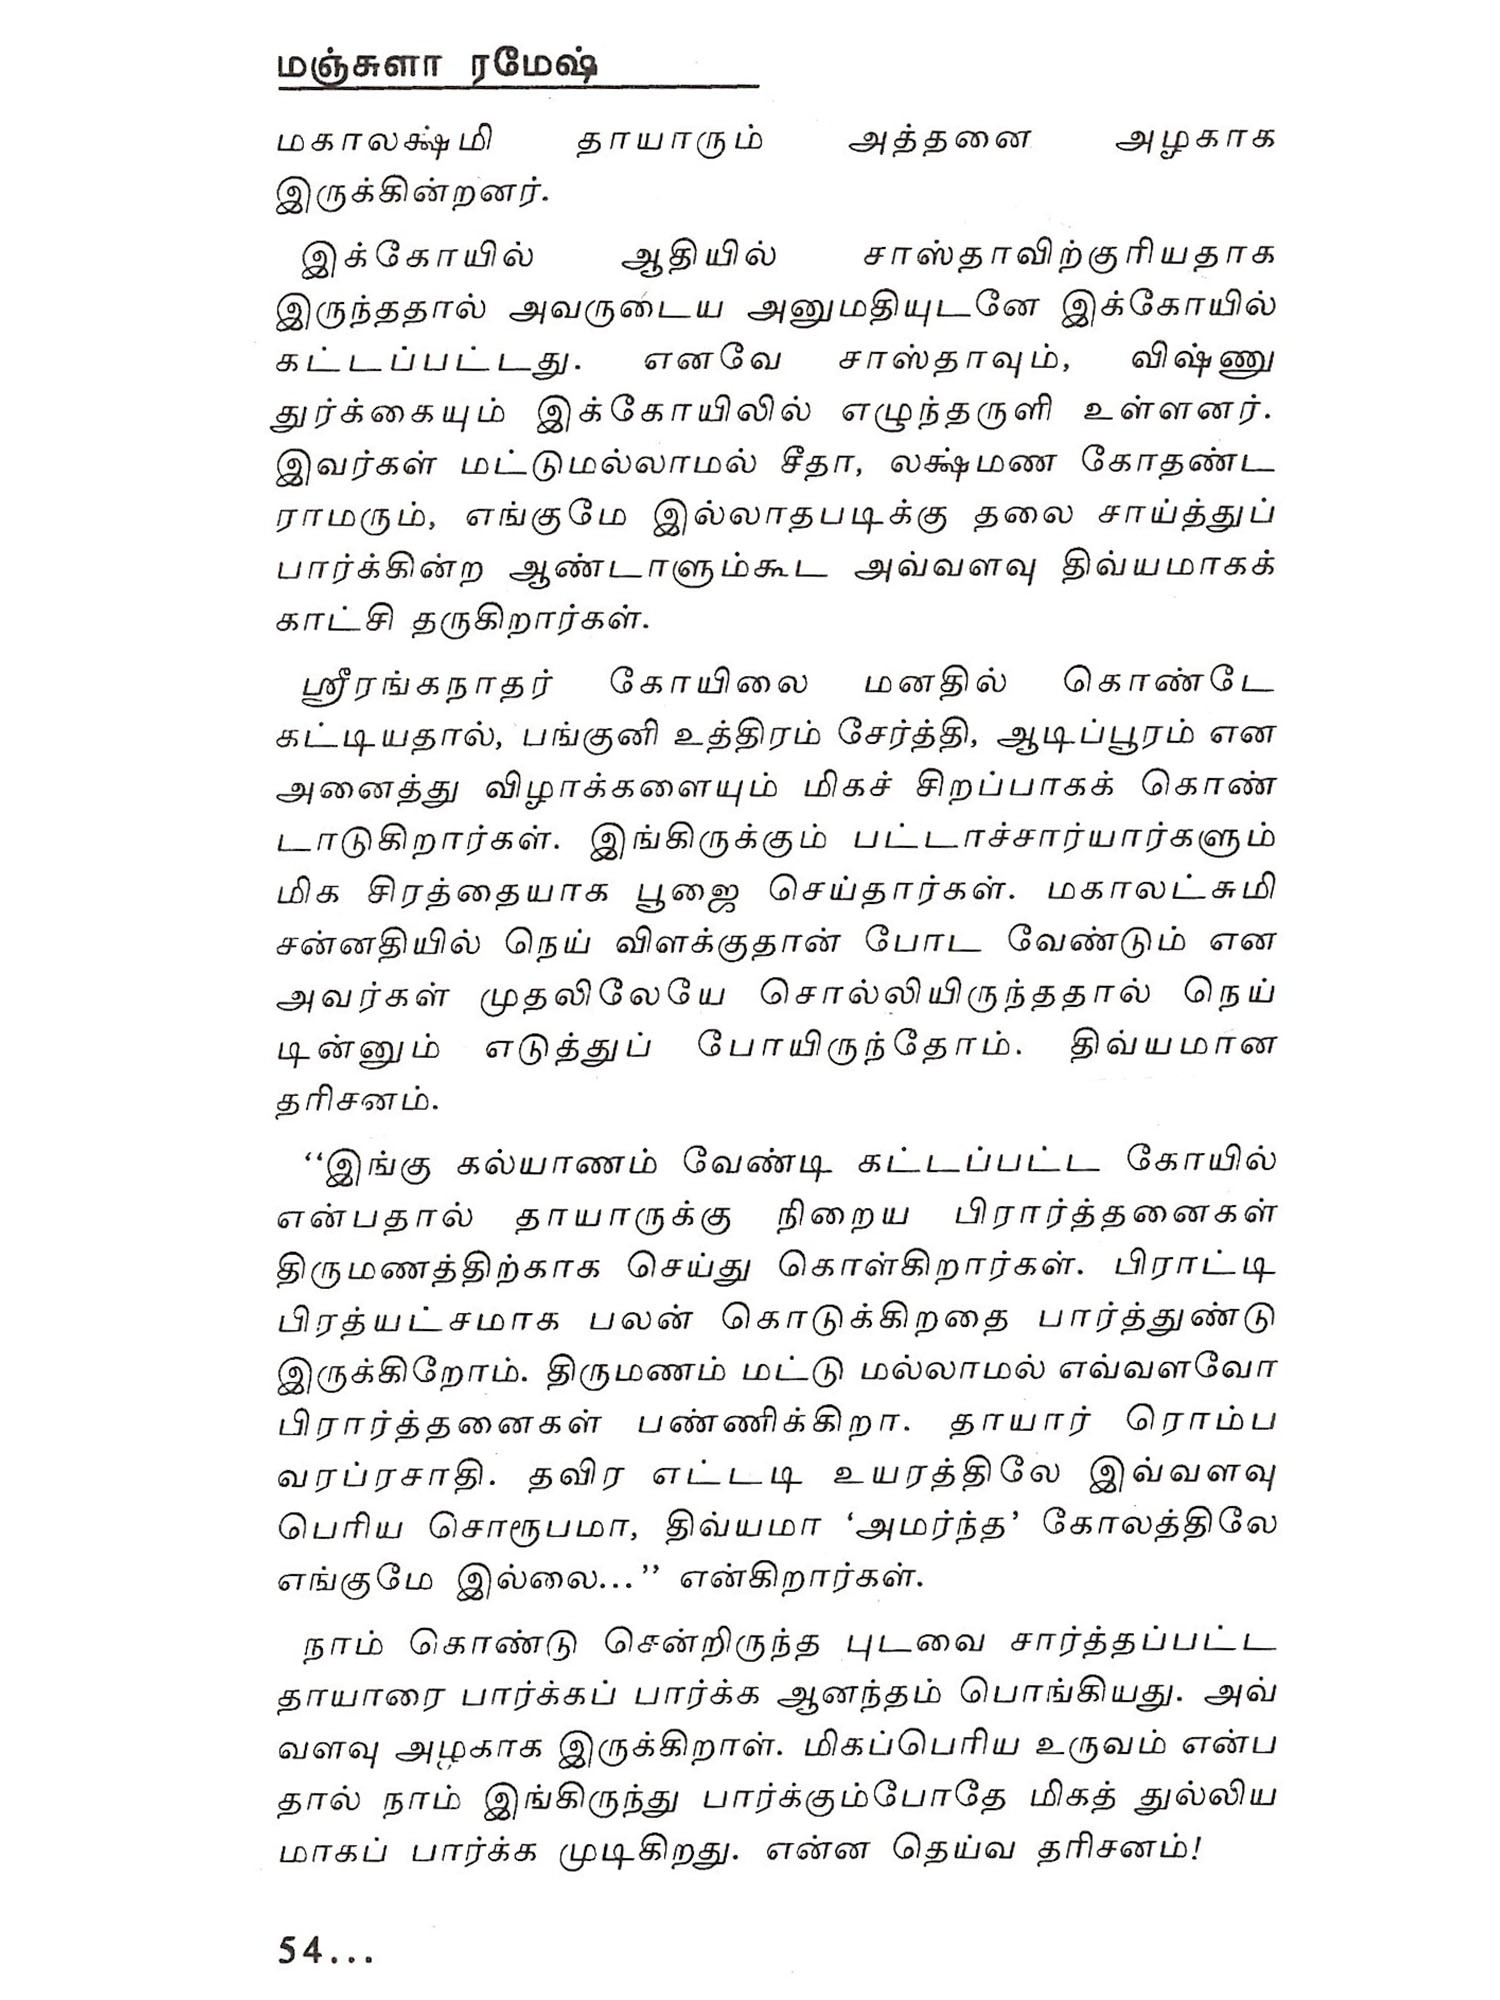 மஞ்சுளா ரமேஷ்
மகாலக்ஷ்மி தாயாரும் அத்தனை அழகாக
இருக்கின்றனர்.
இக்கோயில் ஆதியில் சாஸ்தாவிற்குரியதாக
இருந்ததால் அவருடைய அனுமதியுடனே இக்கோயில்
கட்டப்பட்டது. எனவே சாஸ்தாவும், விஷ்ணு
துர்க்கையும் இக்கோயிலில் எழுந்தருளி உள்ளனர்.
இவர்கள் மட்டுமல்லாமல் சீதா, லக்ஷ்மண கோதண்ட
ராமரும், எங்குமே இல்லாதபடிக்கு தலை சாய்த்துப்
பார்க்கின்ற ஆண்டாளும்கூட அவ்வளவு திவ்யமாகக்
காட்சி தருகிறார்கள்.
ஸ்ரீரங்கநாதர் கோயிலை மனதில் கொண்டே
கட்டியதால், பங்குனி உத்திரம் சேர்த்தி, ஆடிப்பூரம் என
அனைத்து விழாக்களையும் மிகச் சிறப்பாகக் கொண்
டாடுகிறார்கள். இங்கிருக்கும் பட்டாச்சார்யார்களும்
மிக சிரத்தையாக பூஜை செய்தார்கள். மகாலட்சுமி
சன்னதியில் நெய் விளக்குதான் போட வேண்டும் என
அவர்கள் முதலிலேயே சொல்லியிருந்ததால் நெய்
டின்னும் எடுத்துப் போயிருந்தோம். திவ்யமான
தரிசனம்.
‘‘இங்கு கல்யாணம் வேண்டி கட்டப்பட்ட கோயில்
என்பதால் தாயாருக்கு நிறைய பிரார்த்தனைகள்
திருமணத்திற்காக செய்து கொள்கிறார்கள். பிராட்டி
பிரத்யட்சமாக பலன் கொடுக்கிறதை பார்த்துண்டு
இருக்கிறோம். திருமணம் மட்டு மல்லாமல் எவ்வளவோ
பிரார்த்தனைகள் பண்ணிக்கிறா. தாயார் ரொம்ப
வரப்ரசாதி. தவிர எட்டடி உயரத்திலே இவ்வளவு
பெரிய சொரூபமா, திவ்யமா ‘அமர்ந்த’ கோலத்திலே
எங்குமே இல்லை...’’ என்கிறார்கள்.
நாம் கொண்டு சென்றிருந்த புடவை சார்த்தப்பட்ட
தாயாரை பார்க்கப் பார்க்க ஆனந்தம் பொங்கியது. அவ்
வளவு அழகாக இருக்கிறாள். மிகப்பெரிய உருவம் என்ப
தால் நாம் இங்கிருந்து பார்க்கும்போதே மிகத் துல்லிய
மாகப் பார்க்க முடிகிறது. என்ன தெய்வ தரிசனம்!
54...